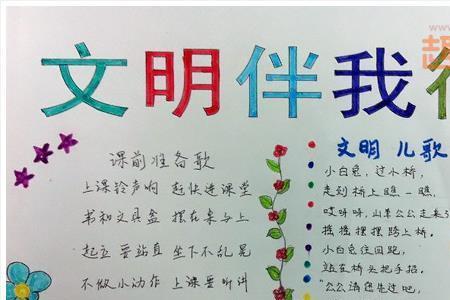 文明伴我行
课前准备歌
上课铃声响 赶快进课堂
书和文具盒 摆在桌与上
起立要站直 坐下不乱晃
不做小动作 上课要听讲
文明儿歌
小白兔，过小桥，
走到桥上瞧一瞧，
哎呀呀，山羊公公走来
摇摇摆摆跨上桥。
小白兔往回跑，
站在桥头把手招。
"公公请您先过吧，